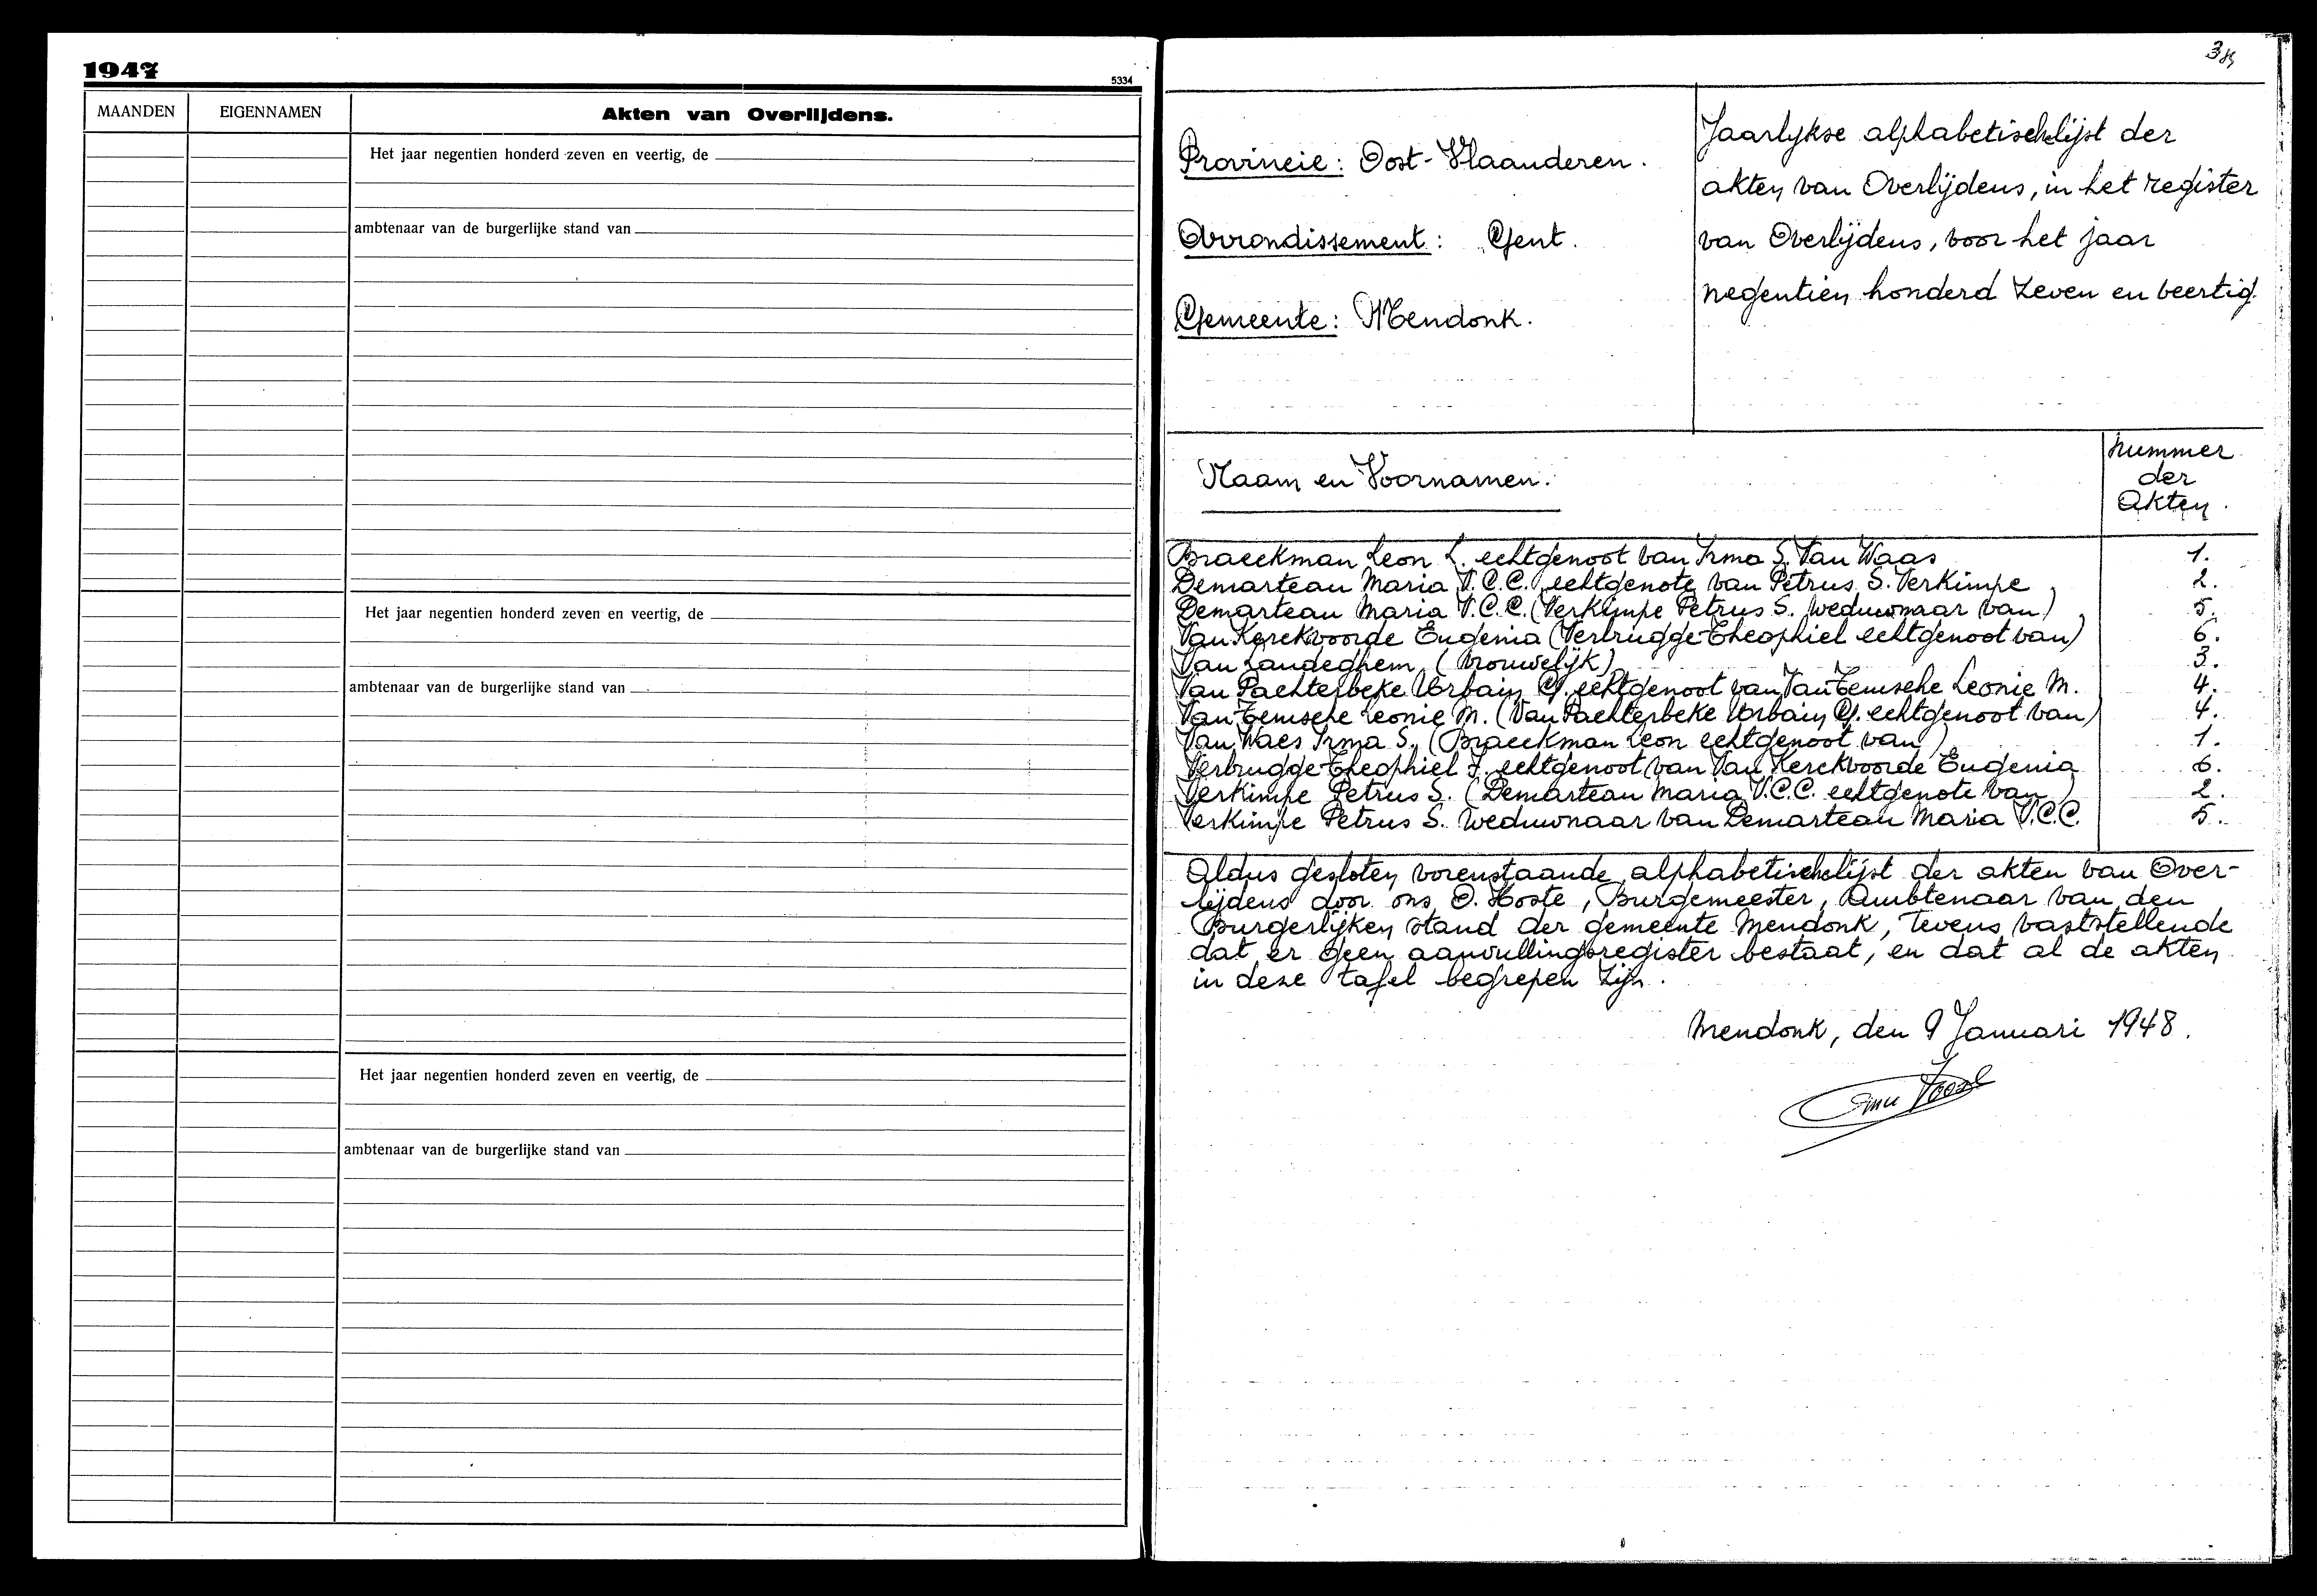 1947
5334
MAANDEN EIGENNAMEN Akten van Overlijdens.
Het jaar negentien honderd zeven en veertig, de
ambtenaar van de burgerlijke stand van
Het jaar negentien honderd zeven en veertig, de
ambtenaar van de burgerlijke stand van
Het jaar negentien honderd zeven en veertig, de
ambtenaar van de burgerlijke stand van
Provincie: Oost-Vlaanderen.
Arrondissement: Gent.
Gemeente: Mendonk.
Jaarlykse alphabetischelijst der
akten van Overlijdens, in het register
van Overlijdens, voor het jaar
negentien honderd zeven en veertig.
Naam en Voornamen.
nummer
der
Akten.
Braeckman Leon L. echtgenoot van Irma S. Van Waas 1.
Demarteau Maria V.C.C. echtgenote van Petrus S. Verkimpe 2.
Demarteau Maria V.C.C. (Verkimpe Petrus S. weduwnaar van) 5.
Van Kerckvoorde Eugenia (Verbrugge Theophiel echtgenoot van) 6.
Van Landeghem (Vrouwelijk) 3.
Van Pachterbeke Urbain G. echtgenoot van Van Temsche Leonie M. 4.
Van Temsche Leonie M. (Van Pachterbeke Urbain G. echtgenoot van) 4.
Van Waes Irma S. (Braeckman Leon echtgenoot van) 1.
Verbrugge Theophiel J. echtgenoot van Van Kerckvoorde Eugenia 6.
Verkimpe Petrus S. (Demarteau Maria V.C.C. echtgenote van) 2.
Verkimpe Petrus S. weduwnaar van Demarteau Maria V.C.C. 5.
Aldus gesloten vorenstaande alphabetischelijst der akten van Over-
lijdens door ons O. Hoste, Burgemeester, Ambtenaar van den
Burgerlijken stand der gemeente Mendonk, tevens vaststellende
dat er geen aanvullingsregister bestaat, en dat al de akten
in deze tafel begrepen zijn.
Mendonk, den 9 Januari 1948.